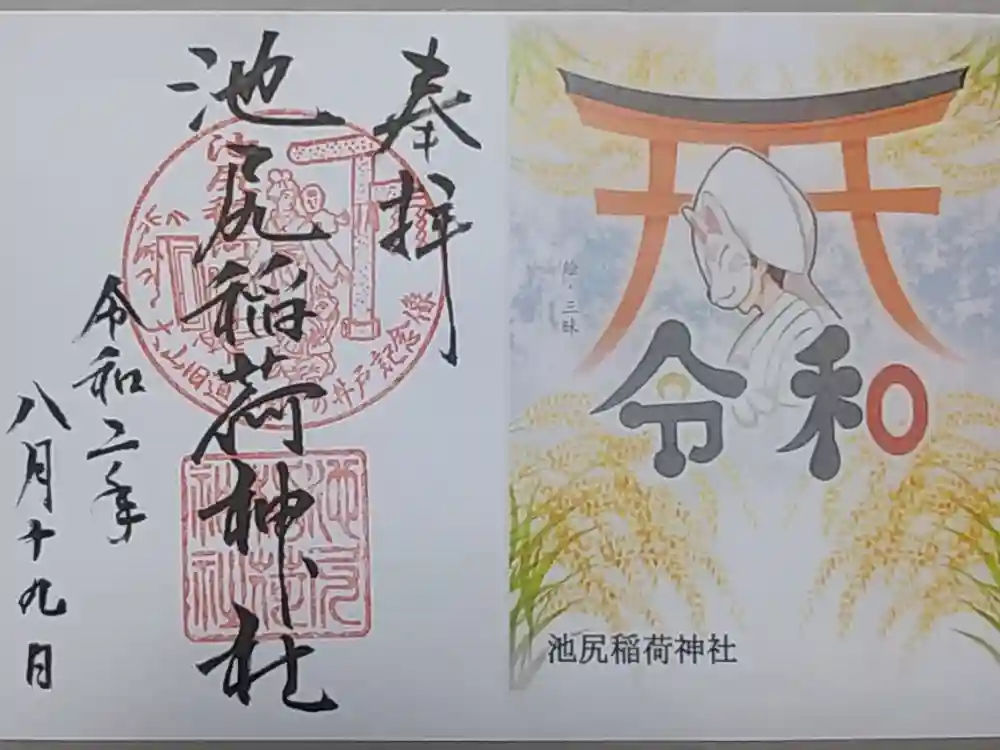 奉拝
池尻稲荷神社
令和二年
八月十九日
旧道
の井戸記念
絵・三昧
令和
池尻稲荷神社